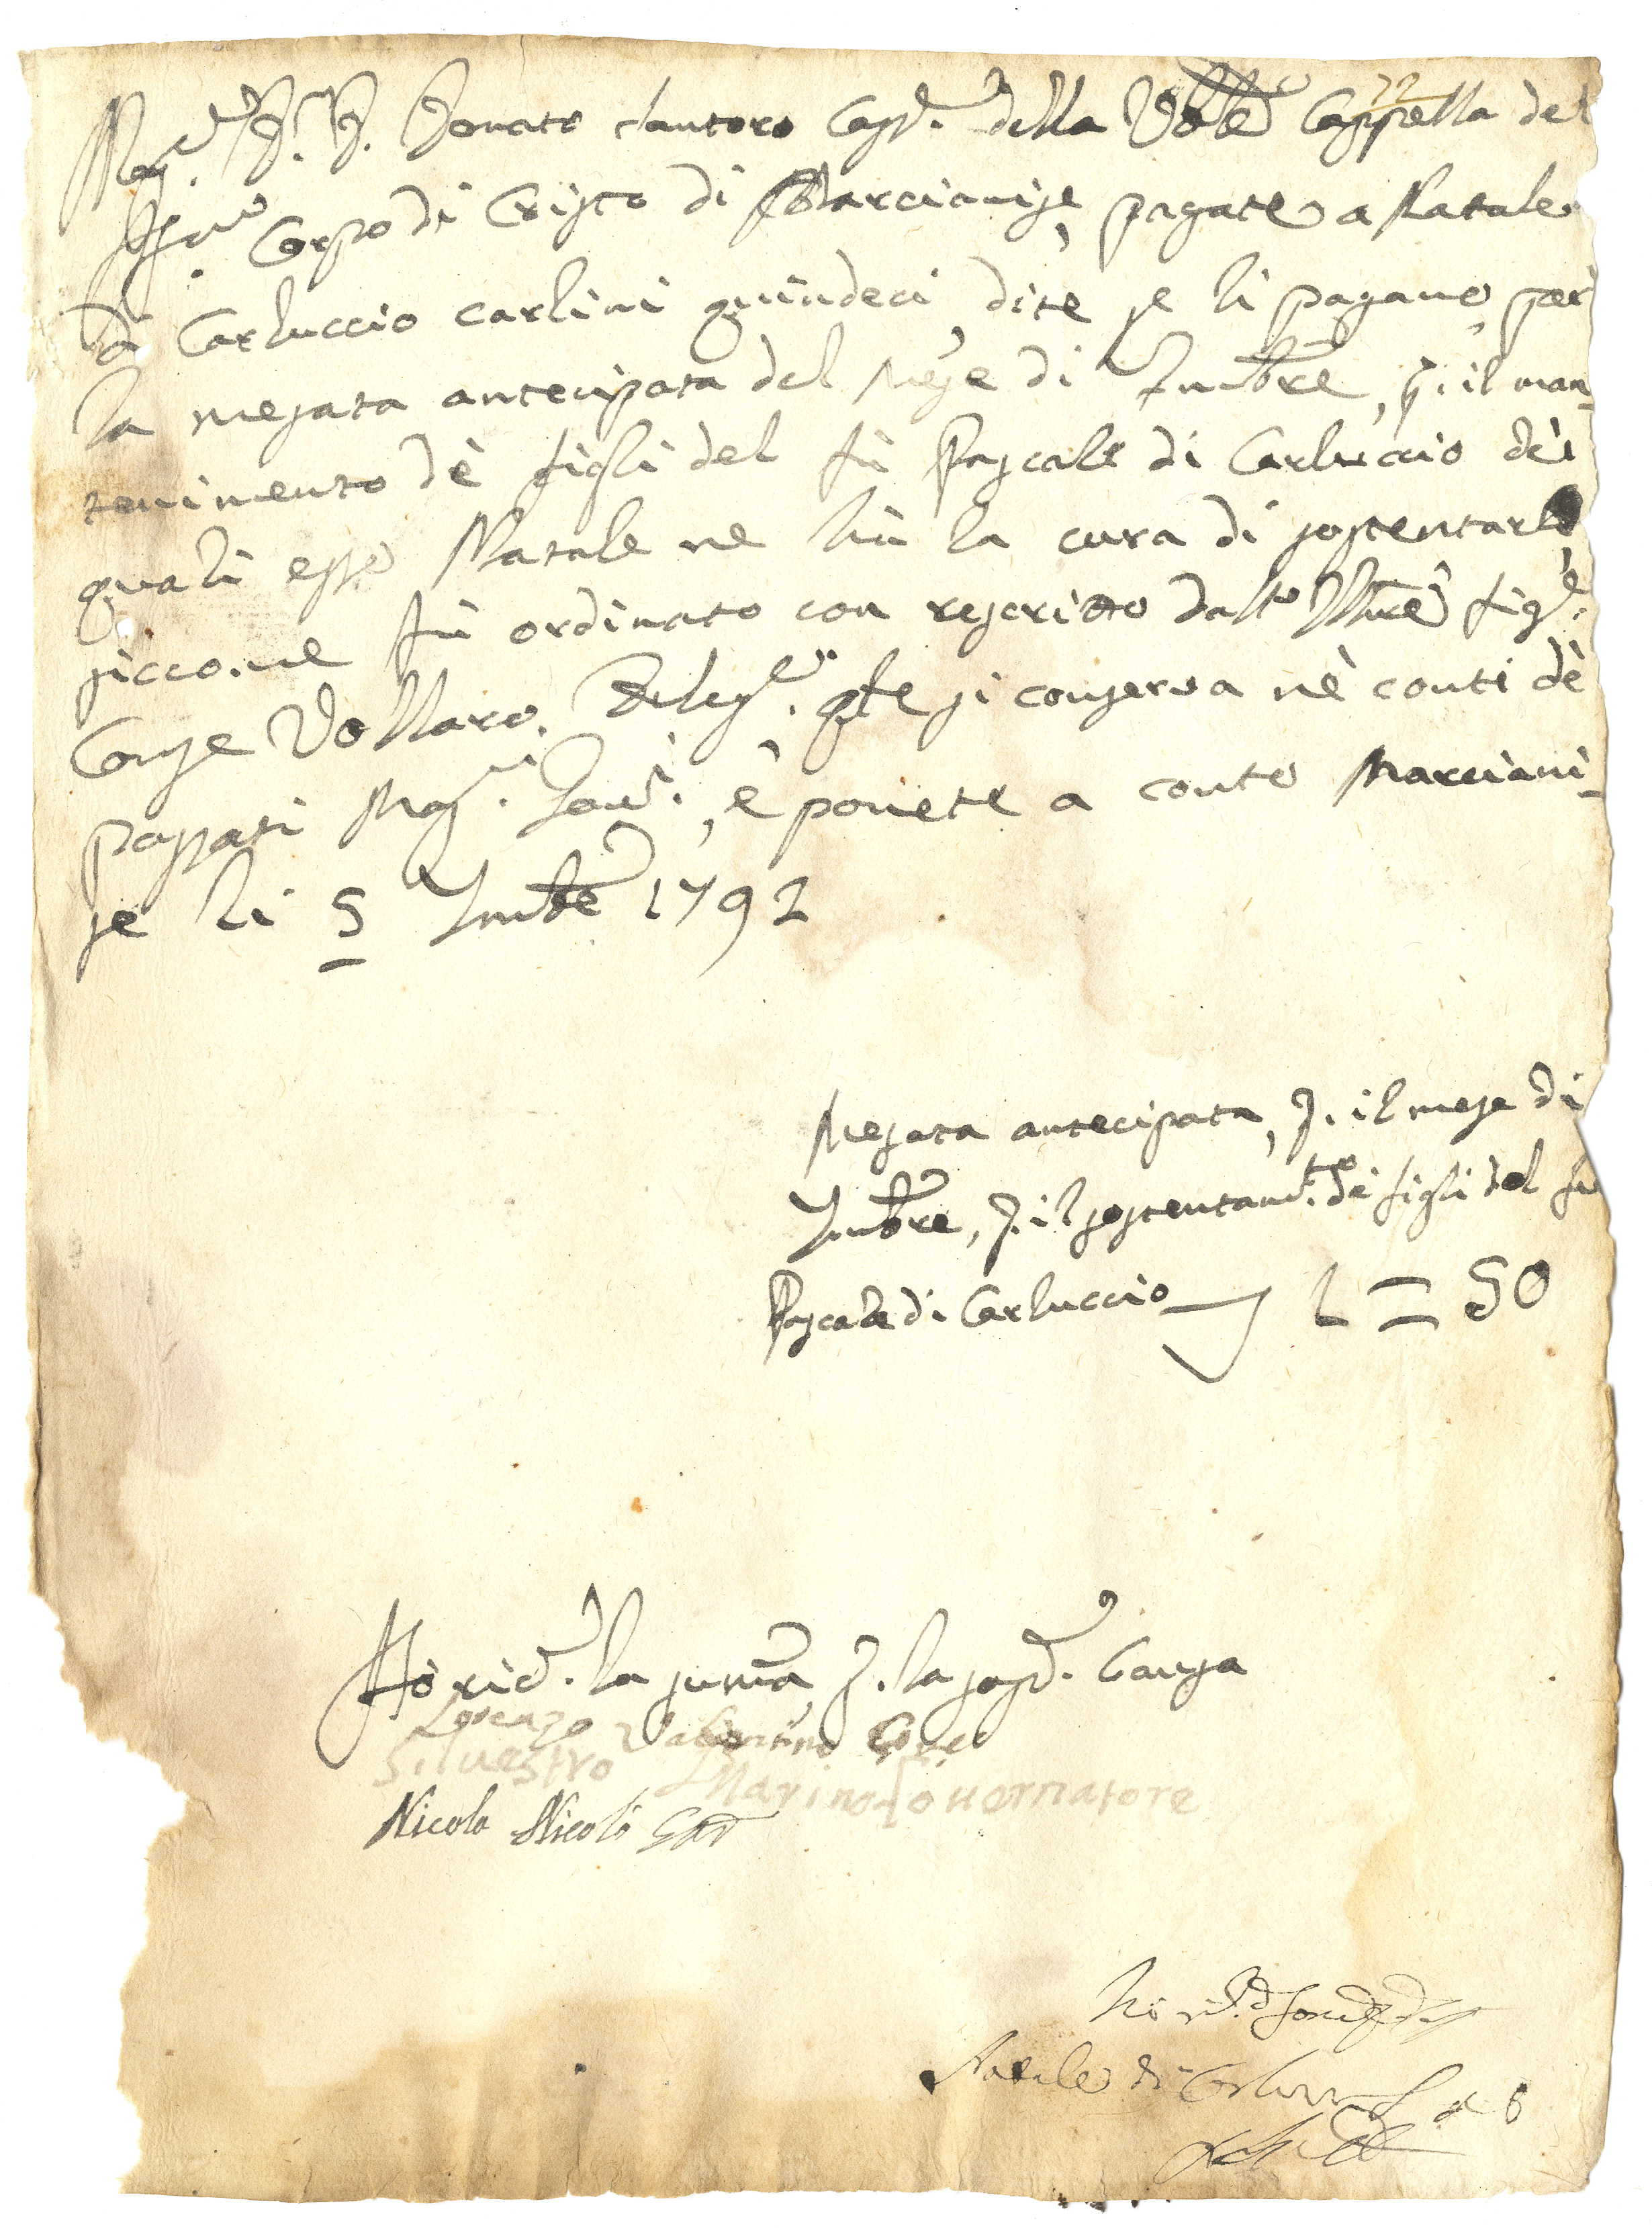 Mag.co D. D. Donato Santoro Cass.re della Vble Cappella del
SSmo Corpo di Cristo di Marcianise, pagate a Natale
di Carluccio carlini quindeci, dite se li pagano per
la mesata antecipata del Mese di 7mbre, p. il man-
tenimento dè figli del fù Pascale di Carluccio dei
quali esso Natale ne hà la cura di sostentarli
siccome fù ordinato con rescritto dall'Illtre Sig.e
Conse Vollaro. Deleg.to qle si conserva nè conti dè
passati Mag.ci Gov.ri, è ponete a conto Marciani-
se li 5 7mbre 1792
Mesata antecipata, p. il mese di
7mbre, p. il sostentam.to dè figli del fù
Pascale di Carluccio 1 = 50
Hò ric.to la suma p. la sopd.a Causa
Lorenzo Valentino
Silvestro Marino Governatore
Nicola Nicolò Gov
Natale di